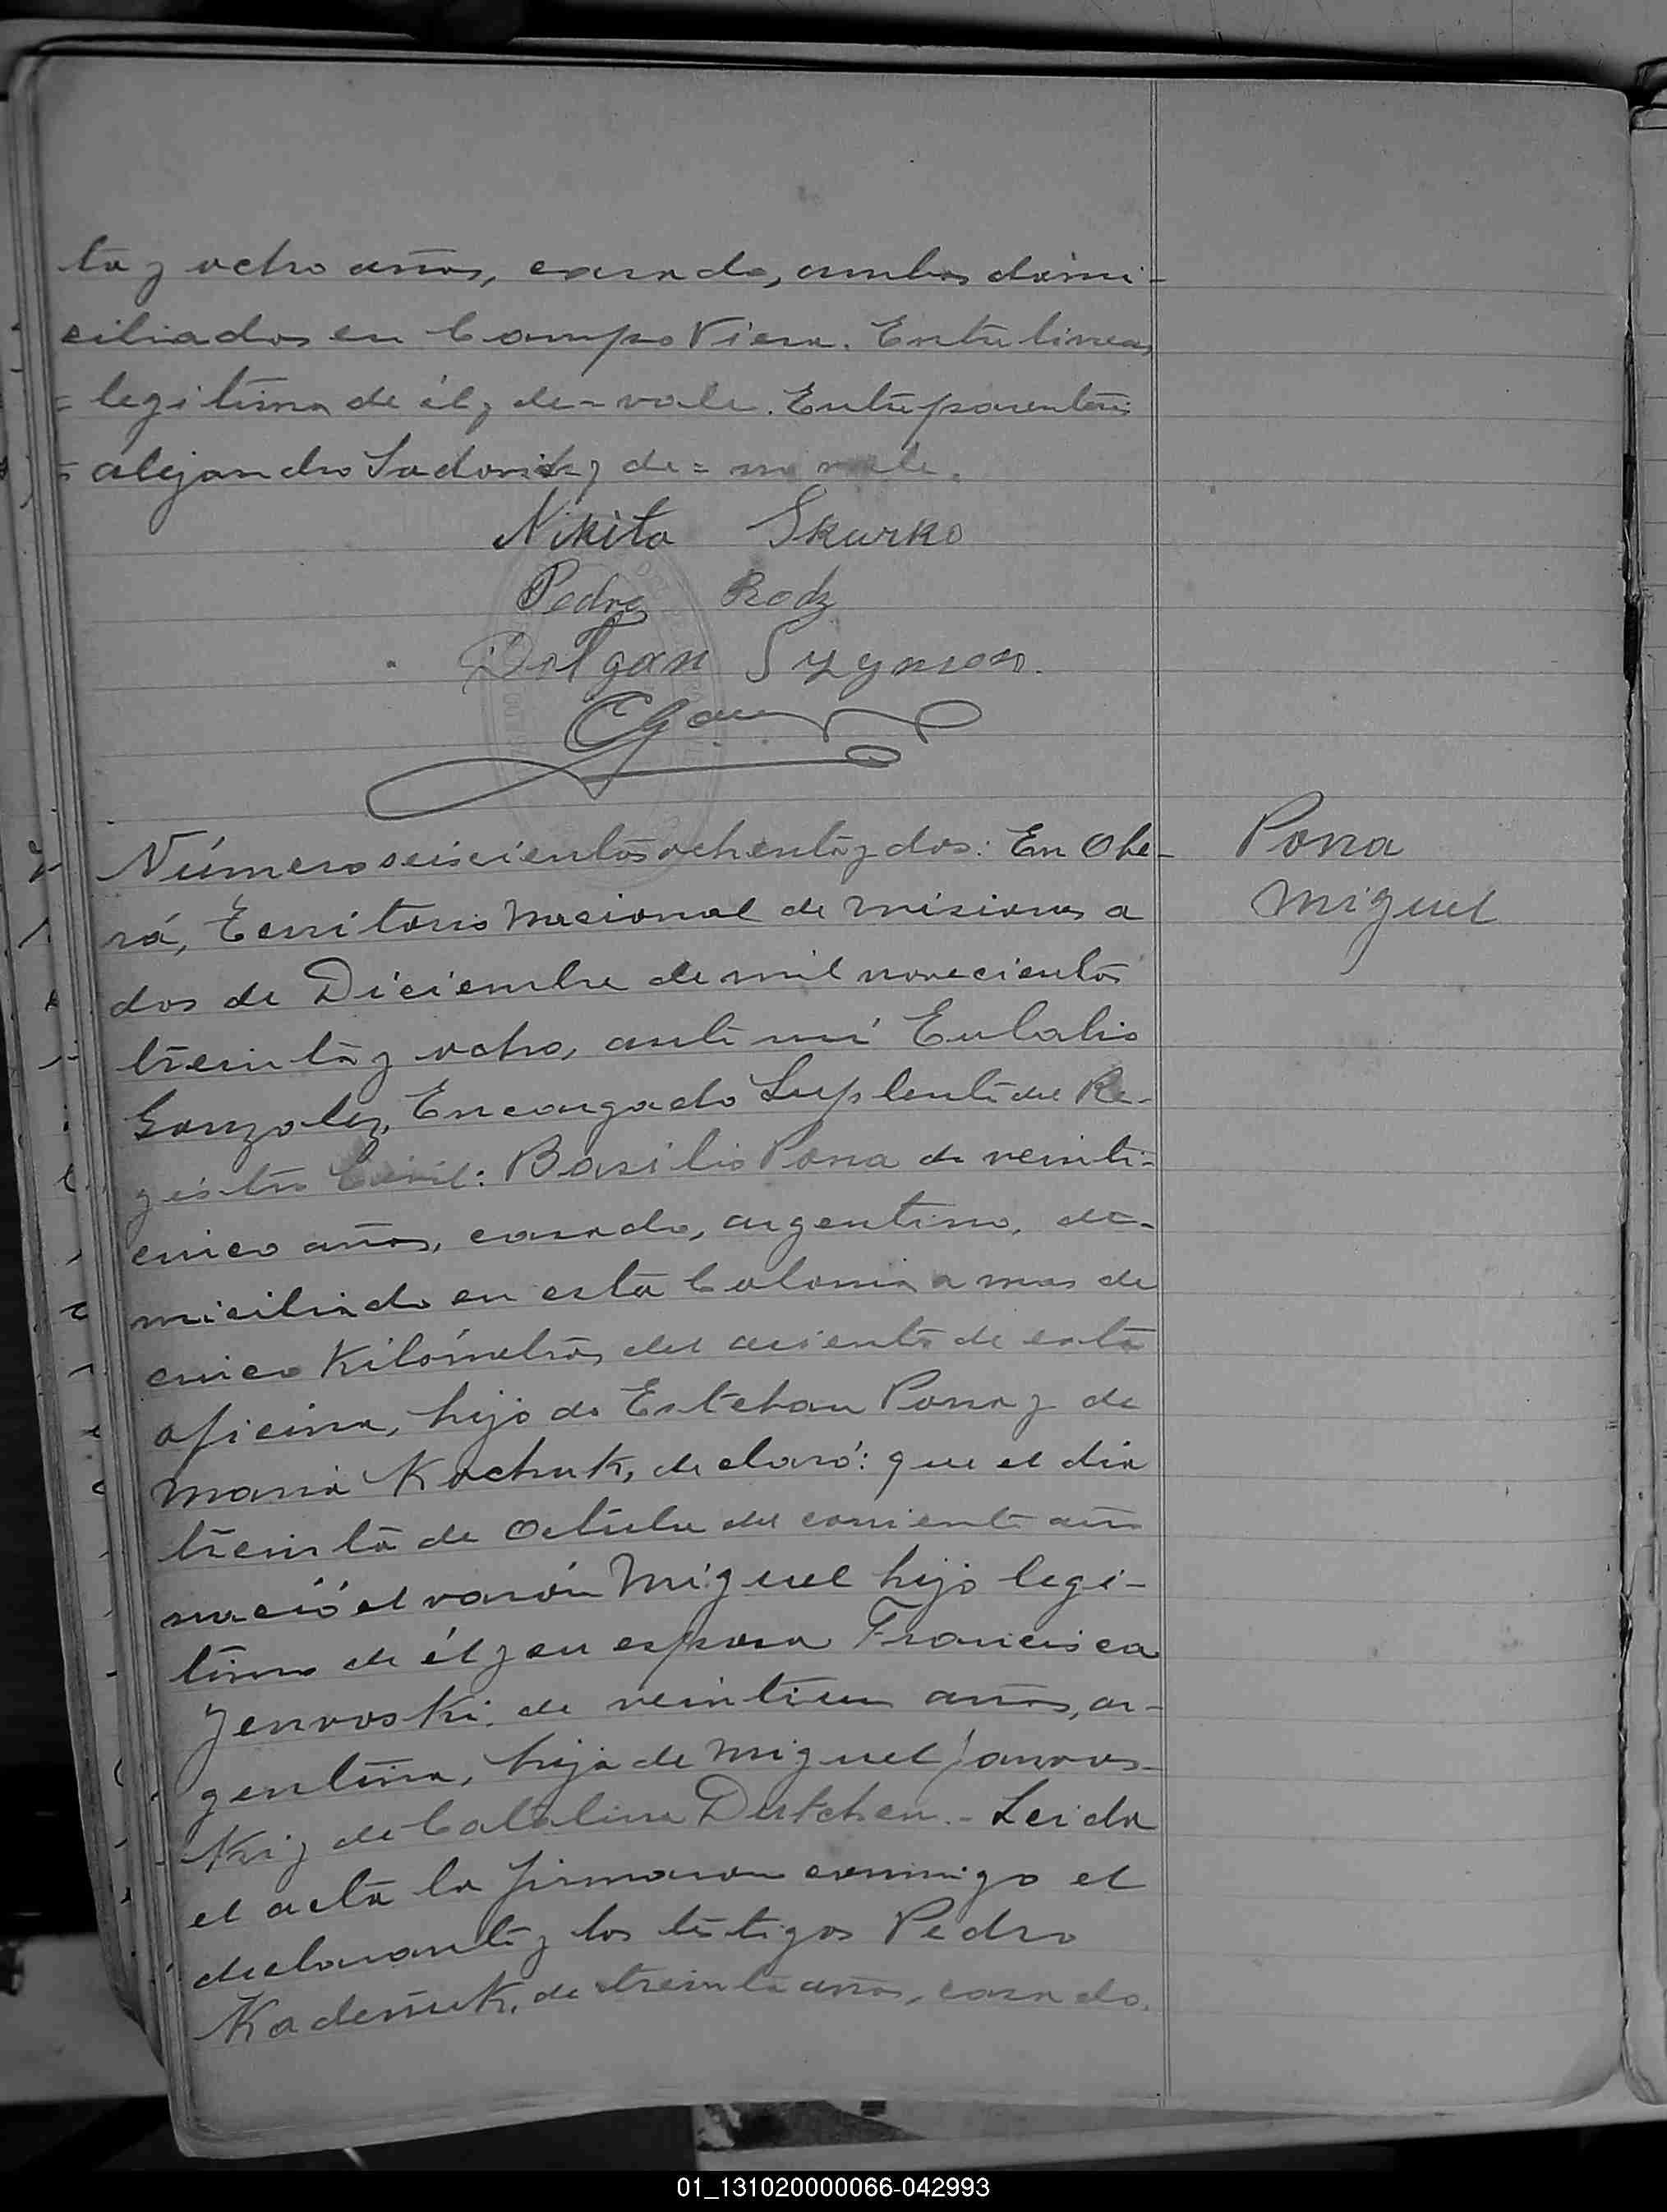 ta y ocho años, casado, ambos domi-
ciliados en Campo Viera. Entre lineas
= legitima de él y de = vale. Entre parentesis
= alejandro Sadovik y de = no vale.
Nikita Skurko
Pedro Rodz
Dolgan Szymon.
EGon
Número seiscientos ochenta y dos: En Obe-
rá, Territorio Nacional de Misiones a
dos de Diciembre de mil novecientos
treinta y ocho, ante mi Eulalio
Gonzalez, Encargado Suplente del Re-
gistro Civil: Basilio Pona de veinti-
cinco años, casado, argentino, do-
miciliado en esta Colonia a mas de
cinco Kilómetros del asiento de esta
oficina, hijo de Esteban Pona y de
Maria Kochuk, declaró: que el dia
treinta de Octubre del corriente año
nació el varón Miguel hijo legi-
timo de él y su esposa Francisca
Jenvoski, de veintiun años, ar-
gentina, hija de Miguel Janvos-
Ki y de Catalina Dutchen. - Leida
el acta la firmaron conmigo el
declarante y los testigos Pedro
Kadeñuk, de treinta años, casado,
Pona
Miguel
01_131020000066-042993